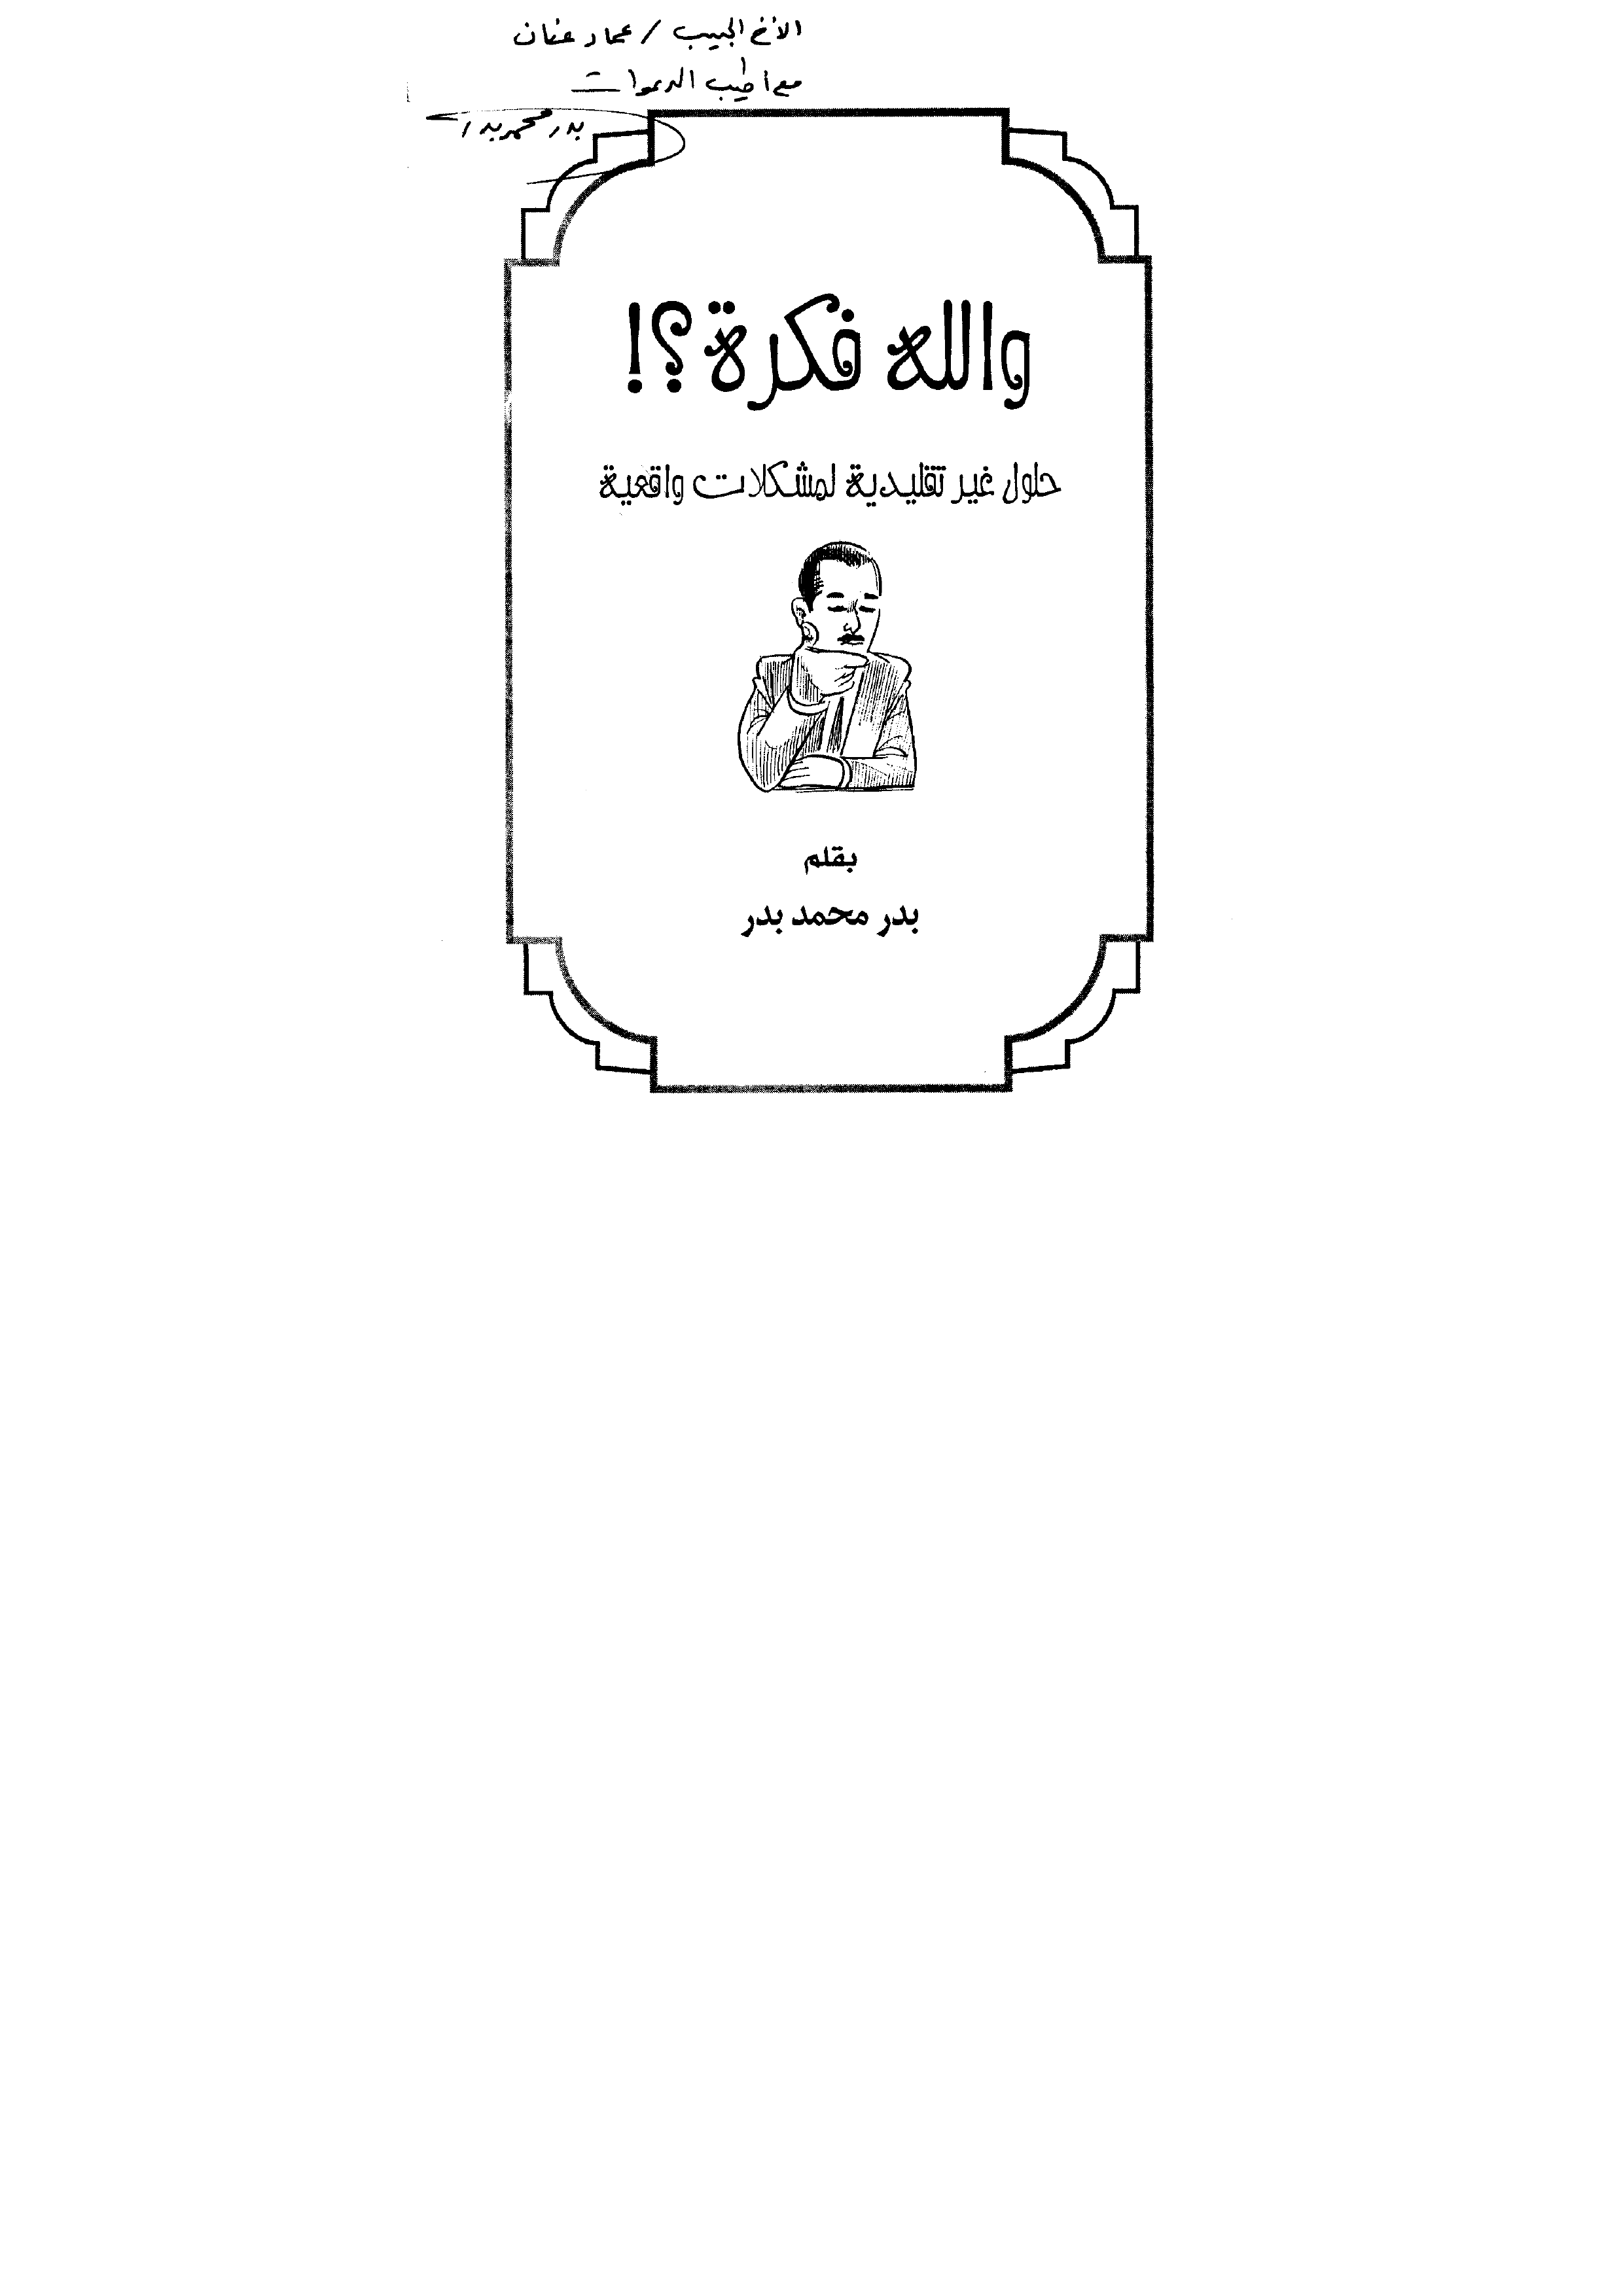 الأخ الحبيب / عماد عنان
مع أطيب الدعوات
بدر محمد بدر
والله فكرة؟!
حلول غير تقليدية لمشكلات واقعية
بقلم
بدر محمد بدر